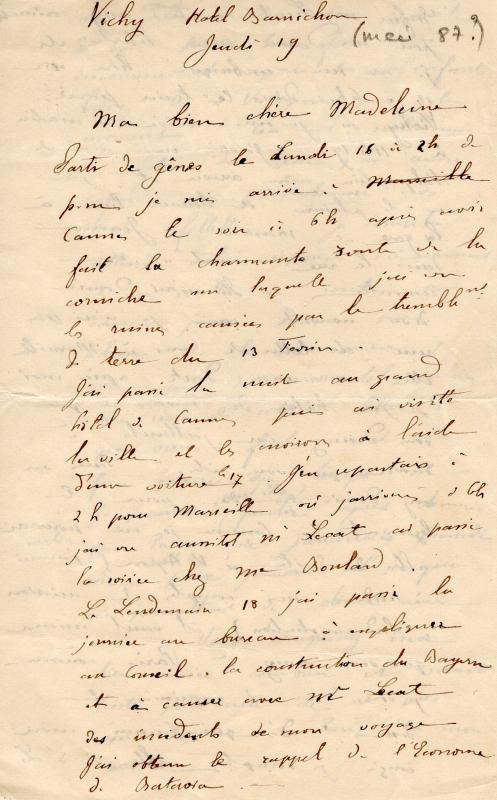 Vichy Hotel Barnichon
Jeudi 19 (mai 87?)
Ma bien chère Madeleine
Parti de gênes le Lundi 16 à 2h de
je suis arrivé à Marseille
Cannes le soir à 6h après avoir
fait la charmante route de la
corniche sur laquelle j'ai vu
les ruines causées par le tremblent
de terre du 13 Fevrier.
J'ai passé la nuit au grand
hôtel de Cannes puis ai visité
la ville et les environs à l'aide
d'une voiture le 17. J'en repartais à
2h pour Marseille où j'arrivai à 6h
j'ai vu aussitot Mr Lecat ai passé
la soirée chez Me Boulard.
Le Lendemain 18 j'ai passé la
journée au bureau à expliquer
au Conseil la construction du
et à causer avec Mr Lecat
des incidents de mon voyage
J'ai obtenu le rappel de l'Econome
de Batavia.